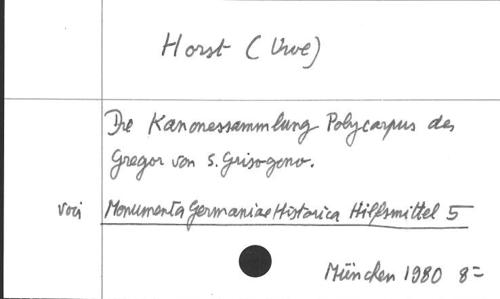 Horst (Uwe)
Die Kanonessammlung Polycarpus des
Gregor von S. Grisogono.
voir Monumenta Germaniae Historica Hilfsmittel 5
München 1980 8=